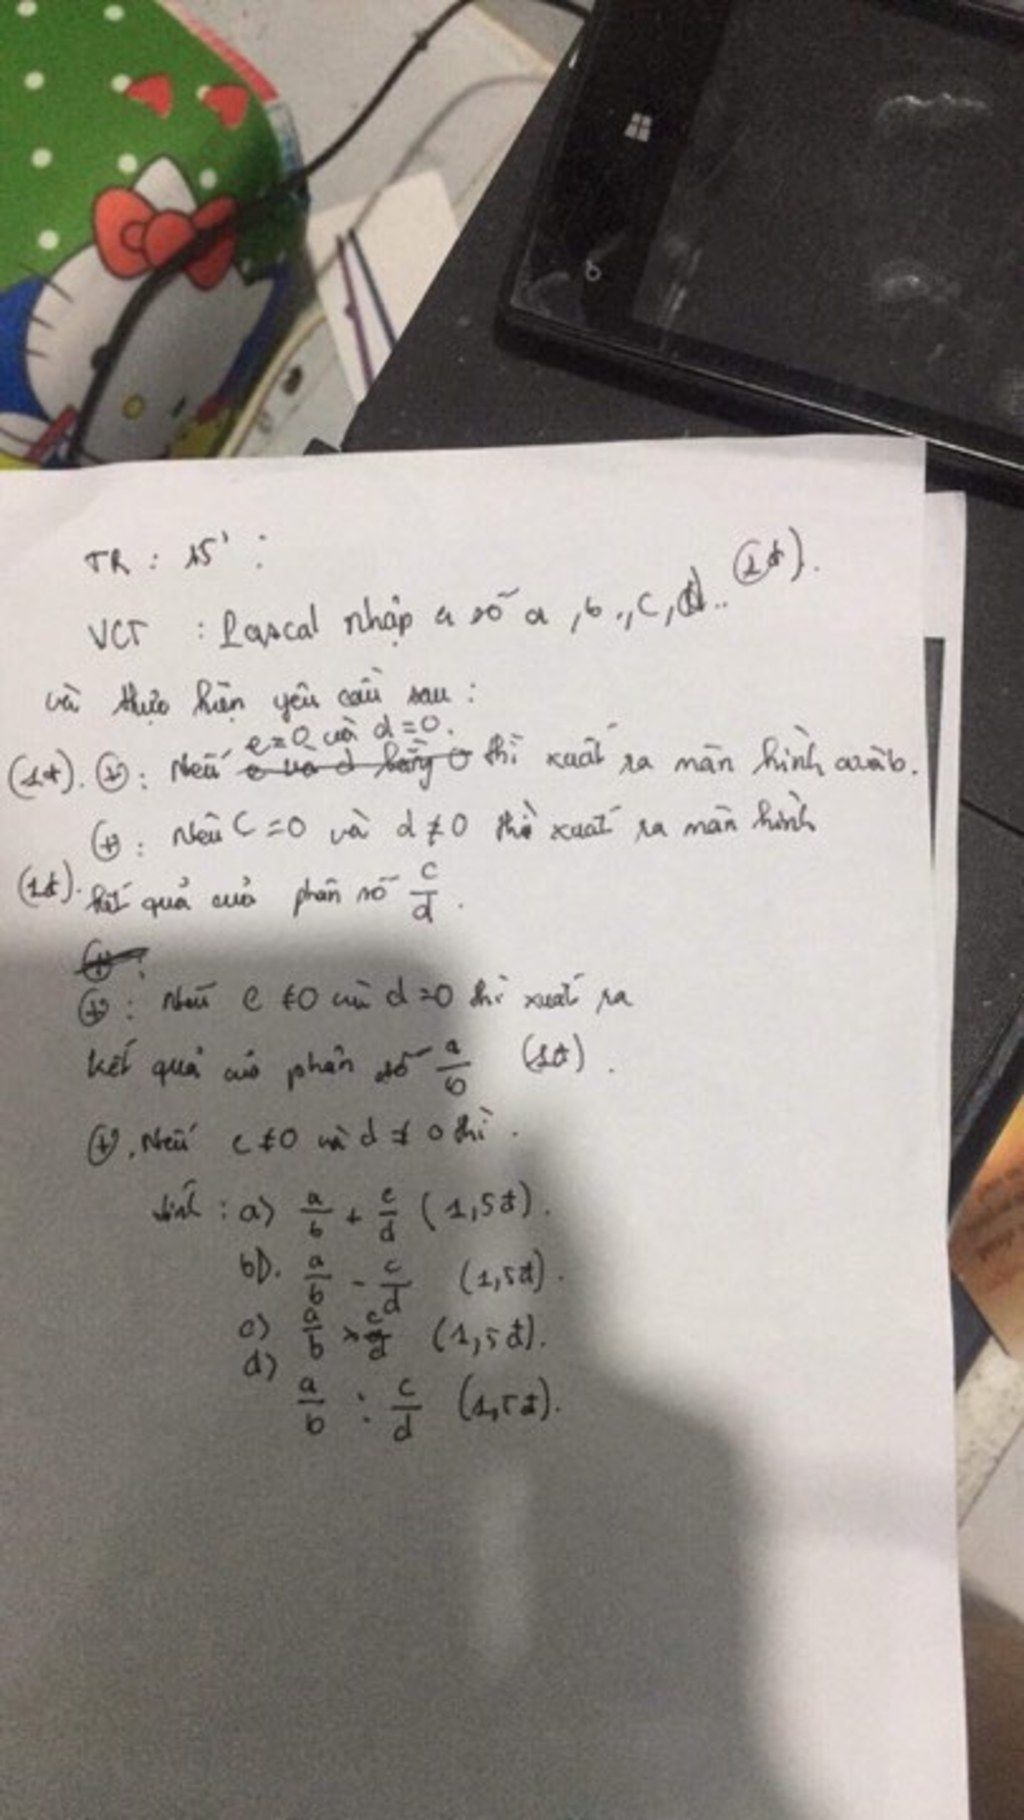 TR : 15' :
VCT : Pascal nhập 4 số a , b , c , d.. (1đ).
và thực hiện yêu cầu sau :
c=0 và d=0.
(1đ). (+): Nếu c và d bằng 0 thì xuất ra màn hình a và b.
(+): Nếu C =0 và d ≠ 0 thì xuất ra màn hình
(1đ). kết quả của phân số c/d .
(+):
(+): Nếu c ≠0 và d =0 thì xuất ra
kết quả của phân số a/b (1đ) .
(+). Nếu c ≠0 và d ≠ 0 thì .
tính : a) a/b + c/d (1,5đ).
b). a/b - c/d (1,5đ).
c) a/b × c/d (1,5đ).
d) a/b : c/d (1,5đ).